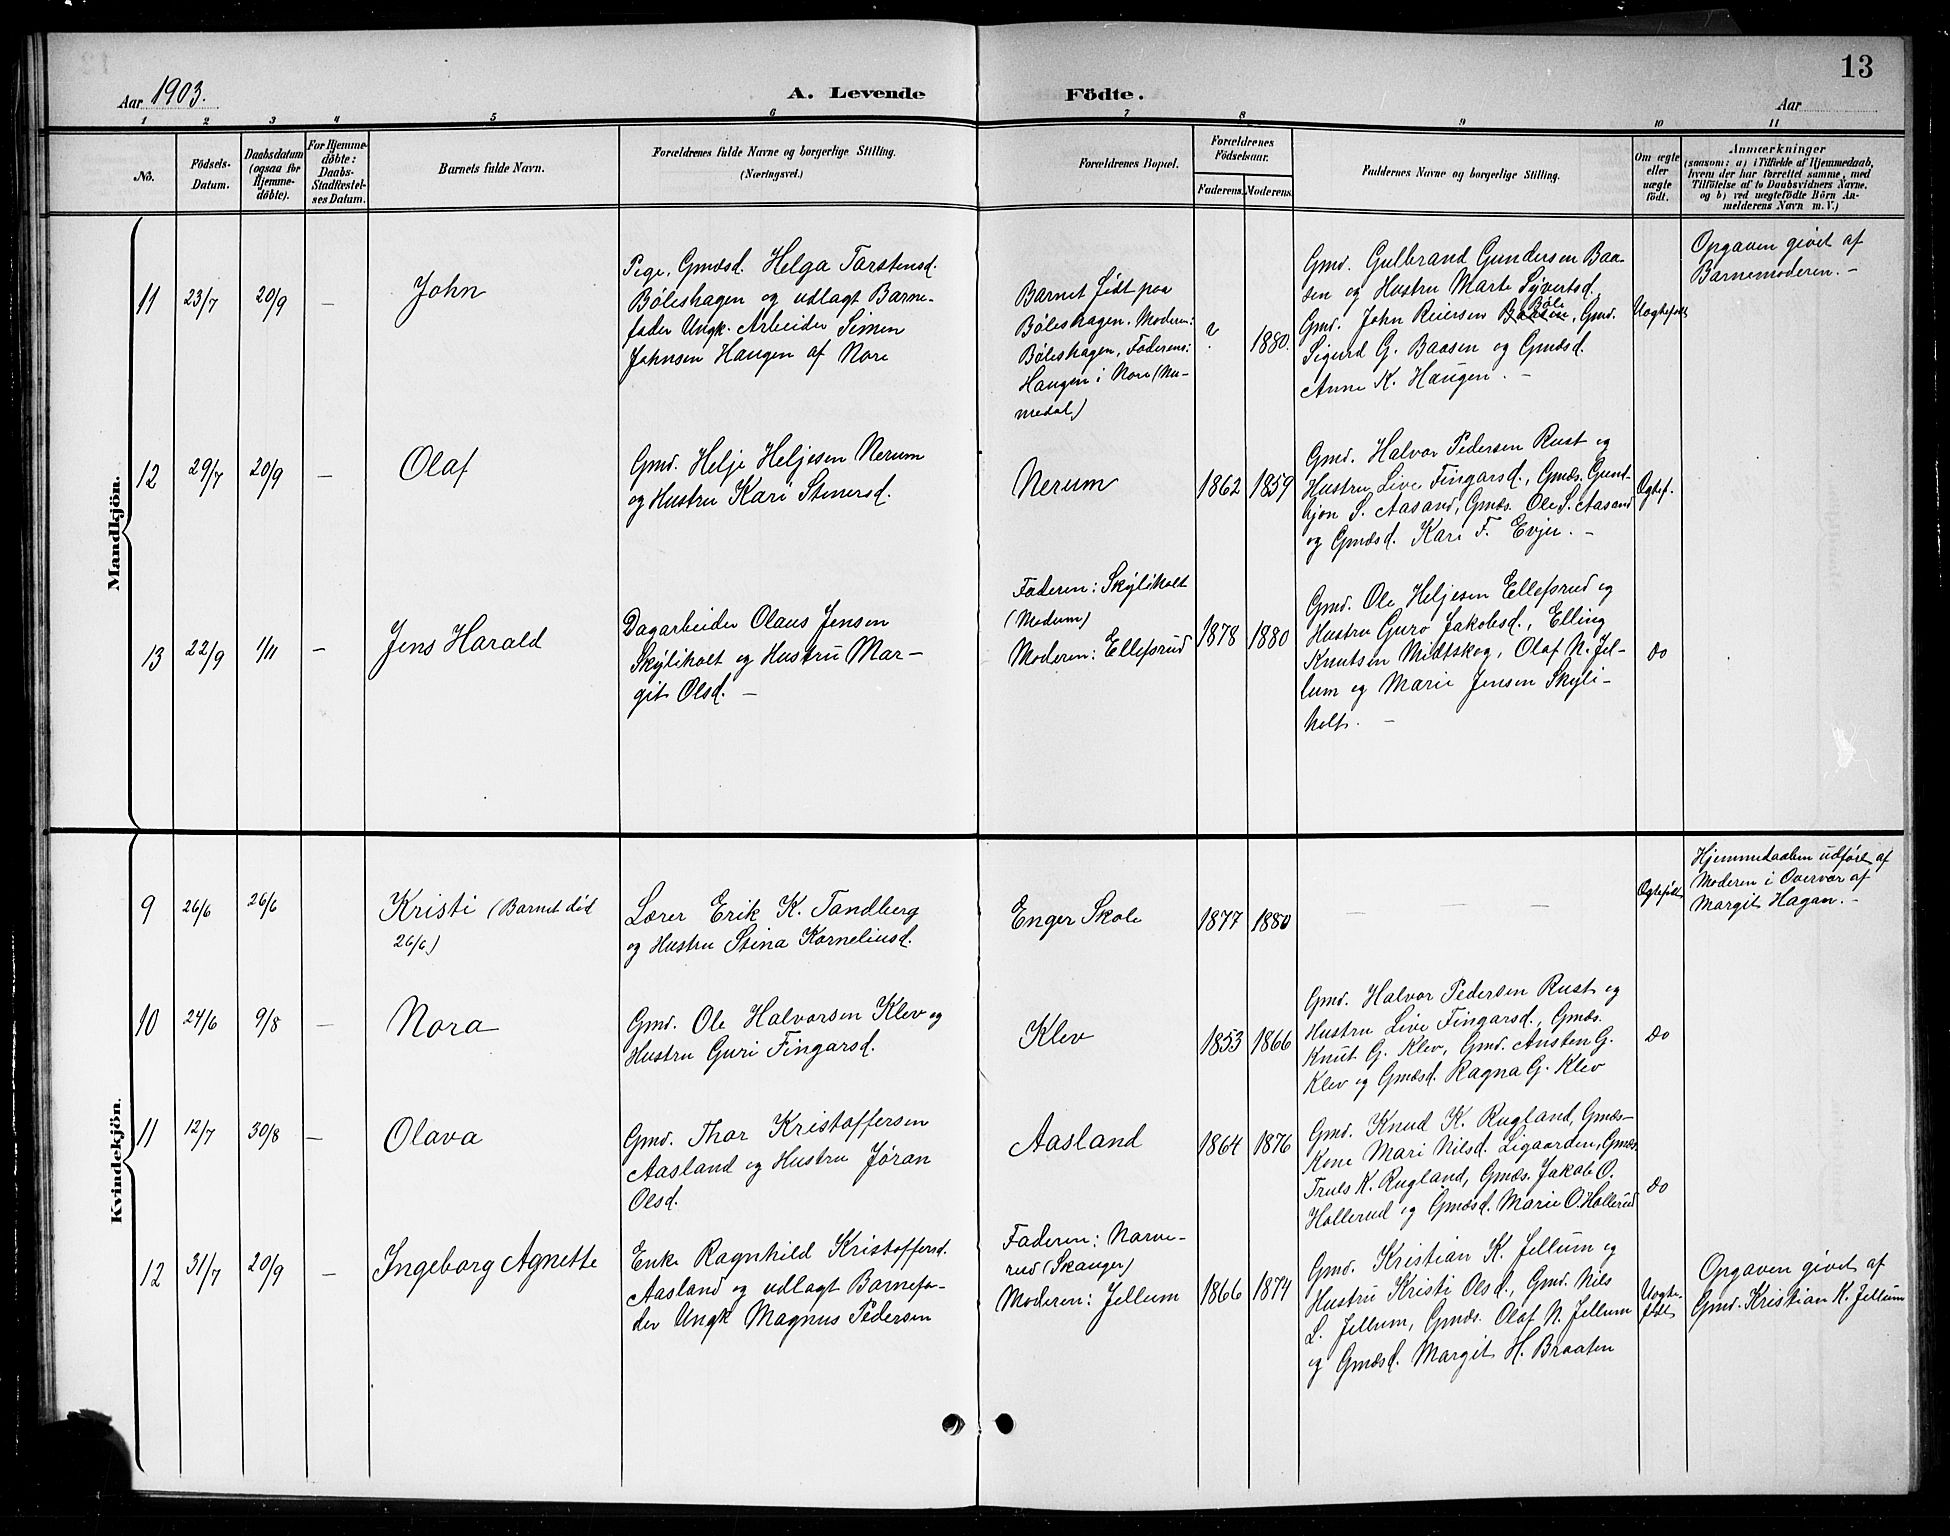 13
Aar 1903.
A. Levende Födte.
Aar
1 2 3 4 5 6 7 8 9 10 11
No.
Födsels-
Datum.
Daabsdatum
(ogsaa for
Hjemme-
døbte).
For Hjemme-
døbte:
Daabs-
Stadfæstel-
ses Datum.
Barnets fulde Navn.
Forældrenes fulde Navne og borgerlige Stilling.
(Næringsvei.)
Forældrenes Bopæl.
Forældrenes
Födselsaar.
Faderens. Moderens.
Faddernes Navne og borgerlige Stilling.
Om ægte
eller
uægte
födt.
Anmærkninger
(saasom: a) i Tilfælde af Hjemmedaab,
hvem der har forrettet samme, med
Tilföielse af to Daabsvidners Navne,
og b) ved uægtefödte Börn An-
melderens Navn m. V.)
Mandkjön.
11
23/7
20/9
—
John
Pige, Gmdsd. Helga Tarstensd.
Bøleshagen og udlagt Barne-
fader Ungk. Arbeider Simen
Johnsen Haugen af Nore
Barnet født paa
Bøleshagen. Moderen:
Bøleshagen, Faderens:
Haugen i Nore (Nu-
medal)
?
1880.
Gmd. Gulbrand Gundersen Baa-
sen og Hustru Marte Syvertsd.
Gmd. John Reiersen Bøle, Gmd.
Sigurd G. Baasen og Gmdsd.
Anne K. Haugen. —
Uegtefødt
Opgaven givet af
Barnemoderen. —
12
29/7
20/9
—
Olaf
Gmd. Helje Heljesen Nerum
og Hustru Kari Stenersd.
Nerum
1862
1859
Gmd. Halvor Pedersen Rust og
Hustru Live Fingarsd., Gmds. Gund-
bjøn S. Aasand, Gmds. Ole S. Aasand
og Gmdsd. Kari F. Evju. —
Egtef.
13
22/9
1/11
—
Jens Harald
Dagarbeider Olaus Jensen
Skyliholt og Hustru Mar-
git Olsd. —
Faderen: Skyliholt
(Modum)
Moderen: Ellefsrud
1878
1880
Gmd. Ole Heljesen Ellefsrud og
Hustru Guro Jakobsd., Elling
Knutsen Midtskog, Olaf N. Jel-
lum og Marie Jensen Skyli-
holt. —
do
Kvindekjön.
9
26/6
26/6
Kristi (Barnet død
26/6)
Lærer Erik K. Tandberg
og Hustru Stina Korneliusd.
Enger Skole
1877
1880
— — —
Egtefødt
Hjemmedaaben udført af
Moderen i Overvær af
Margit Hagan. —
10
24/6
9/8
—
Nora
Gmd. Ole Halvorsen Klev og
Hustru Guri Fingarsd.
Klev
1853
1866
Gmd. Halvor Pedersen Rust og
Hustru Live Fingarsd., Gmds.
Knut G. Klev, Gmd. Austen G.
Klev og Gmdsd. Ragna G. Klev
do
11
12/7
30/8
—
Olava
Gmd. Thor Kristoffersen
Aasland og Hustru Jøran
Olsd.
Aasland
1864
1876
Gmd. Knud K. Rugland, Gmds-
Kone Mari Nilsd. Ligaarden, Gmds.
Truls K. Rugland, Gmds. Jakob O.
Hollerud og Gmdsd. Marie O. Hollerud
do
12
31/7
20/9
—
Ingeborg Agnette
Enke Ragnhild Kristoffersd.
Aasland og udlagt Barnefa-
der Ungk Magnus Pedersen
Faderen: Narve-
rud (Skauger)
Moderen: Jellum
1866
1874
Gmd. Kristian K. Jellum og
Hustru Kristi Olsd., Gmd. Nils
L. Jellum, Gmds. Olaf N. Jellum
og Gmdsd. Margit H. Braaten
Uegte-
født
Opgaven givet af
Gmd. Kristian K. Jellum